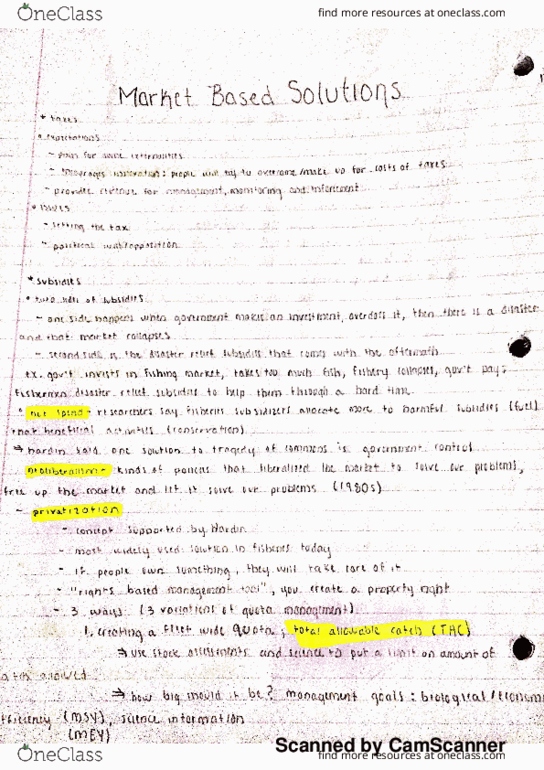 OneClass
find more resources at oneclass.com
Market Based Solutions
* taxes
* expectations
- pays for some externalities
- encourages innovation: people will try to overcome/make up for costs of taxes
- provides revenue for management, monitoring and enforcement
* issues
- setting the tax
- political will/opposition
* subsidies
* two sides of subsidies
- one side happens when government makes an investment, overdoes it, then there is a disaster
and that market collapses
- second side is the disaster relief subsidies that come with the aftermath
ex. gov't invests in fishing market, takes too much fish, fishery collapses, gov't pays
fishermen disaster relief subsidies to help them through a hard time
* net spend - researchers say fisheries subsidizers allocate more to harmful subsidies (fuel)
that beneficial activities (conservation)
⇒ hardin said one solution to tragedy of commons is government control
neoliberalism - kinds of policies that liberalized the market to solve our problems,
free up the market and let it solve our problems (1980s)
- privatization
- concept supported by Hardin
- most widely used solution in fisheries today
- if people own something, they will take care of it
- "rights based management tool", you create a property right
- 3 ways (3 variations of quota management)
1. creating a fleet wide quota; total allowable catch (TAC)
⇒ use stock assessments and science to put a limit on amount of
catch allowed
⇒ how big should it be? management goals: biological/econom
efficiency (MSY), science information
(MEY)
Scanned by CamScanner
OneClass
find more resources at oneclass.com